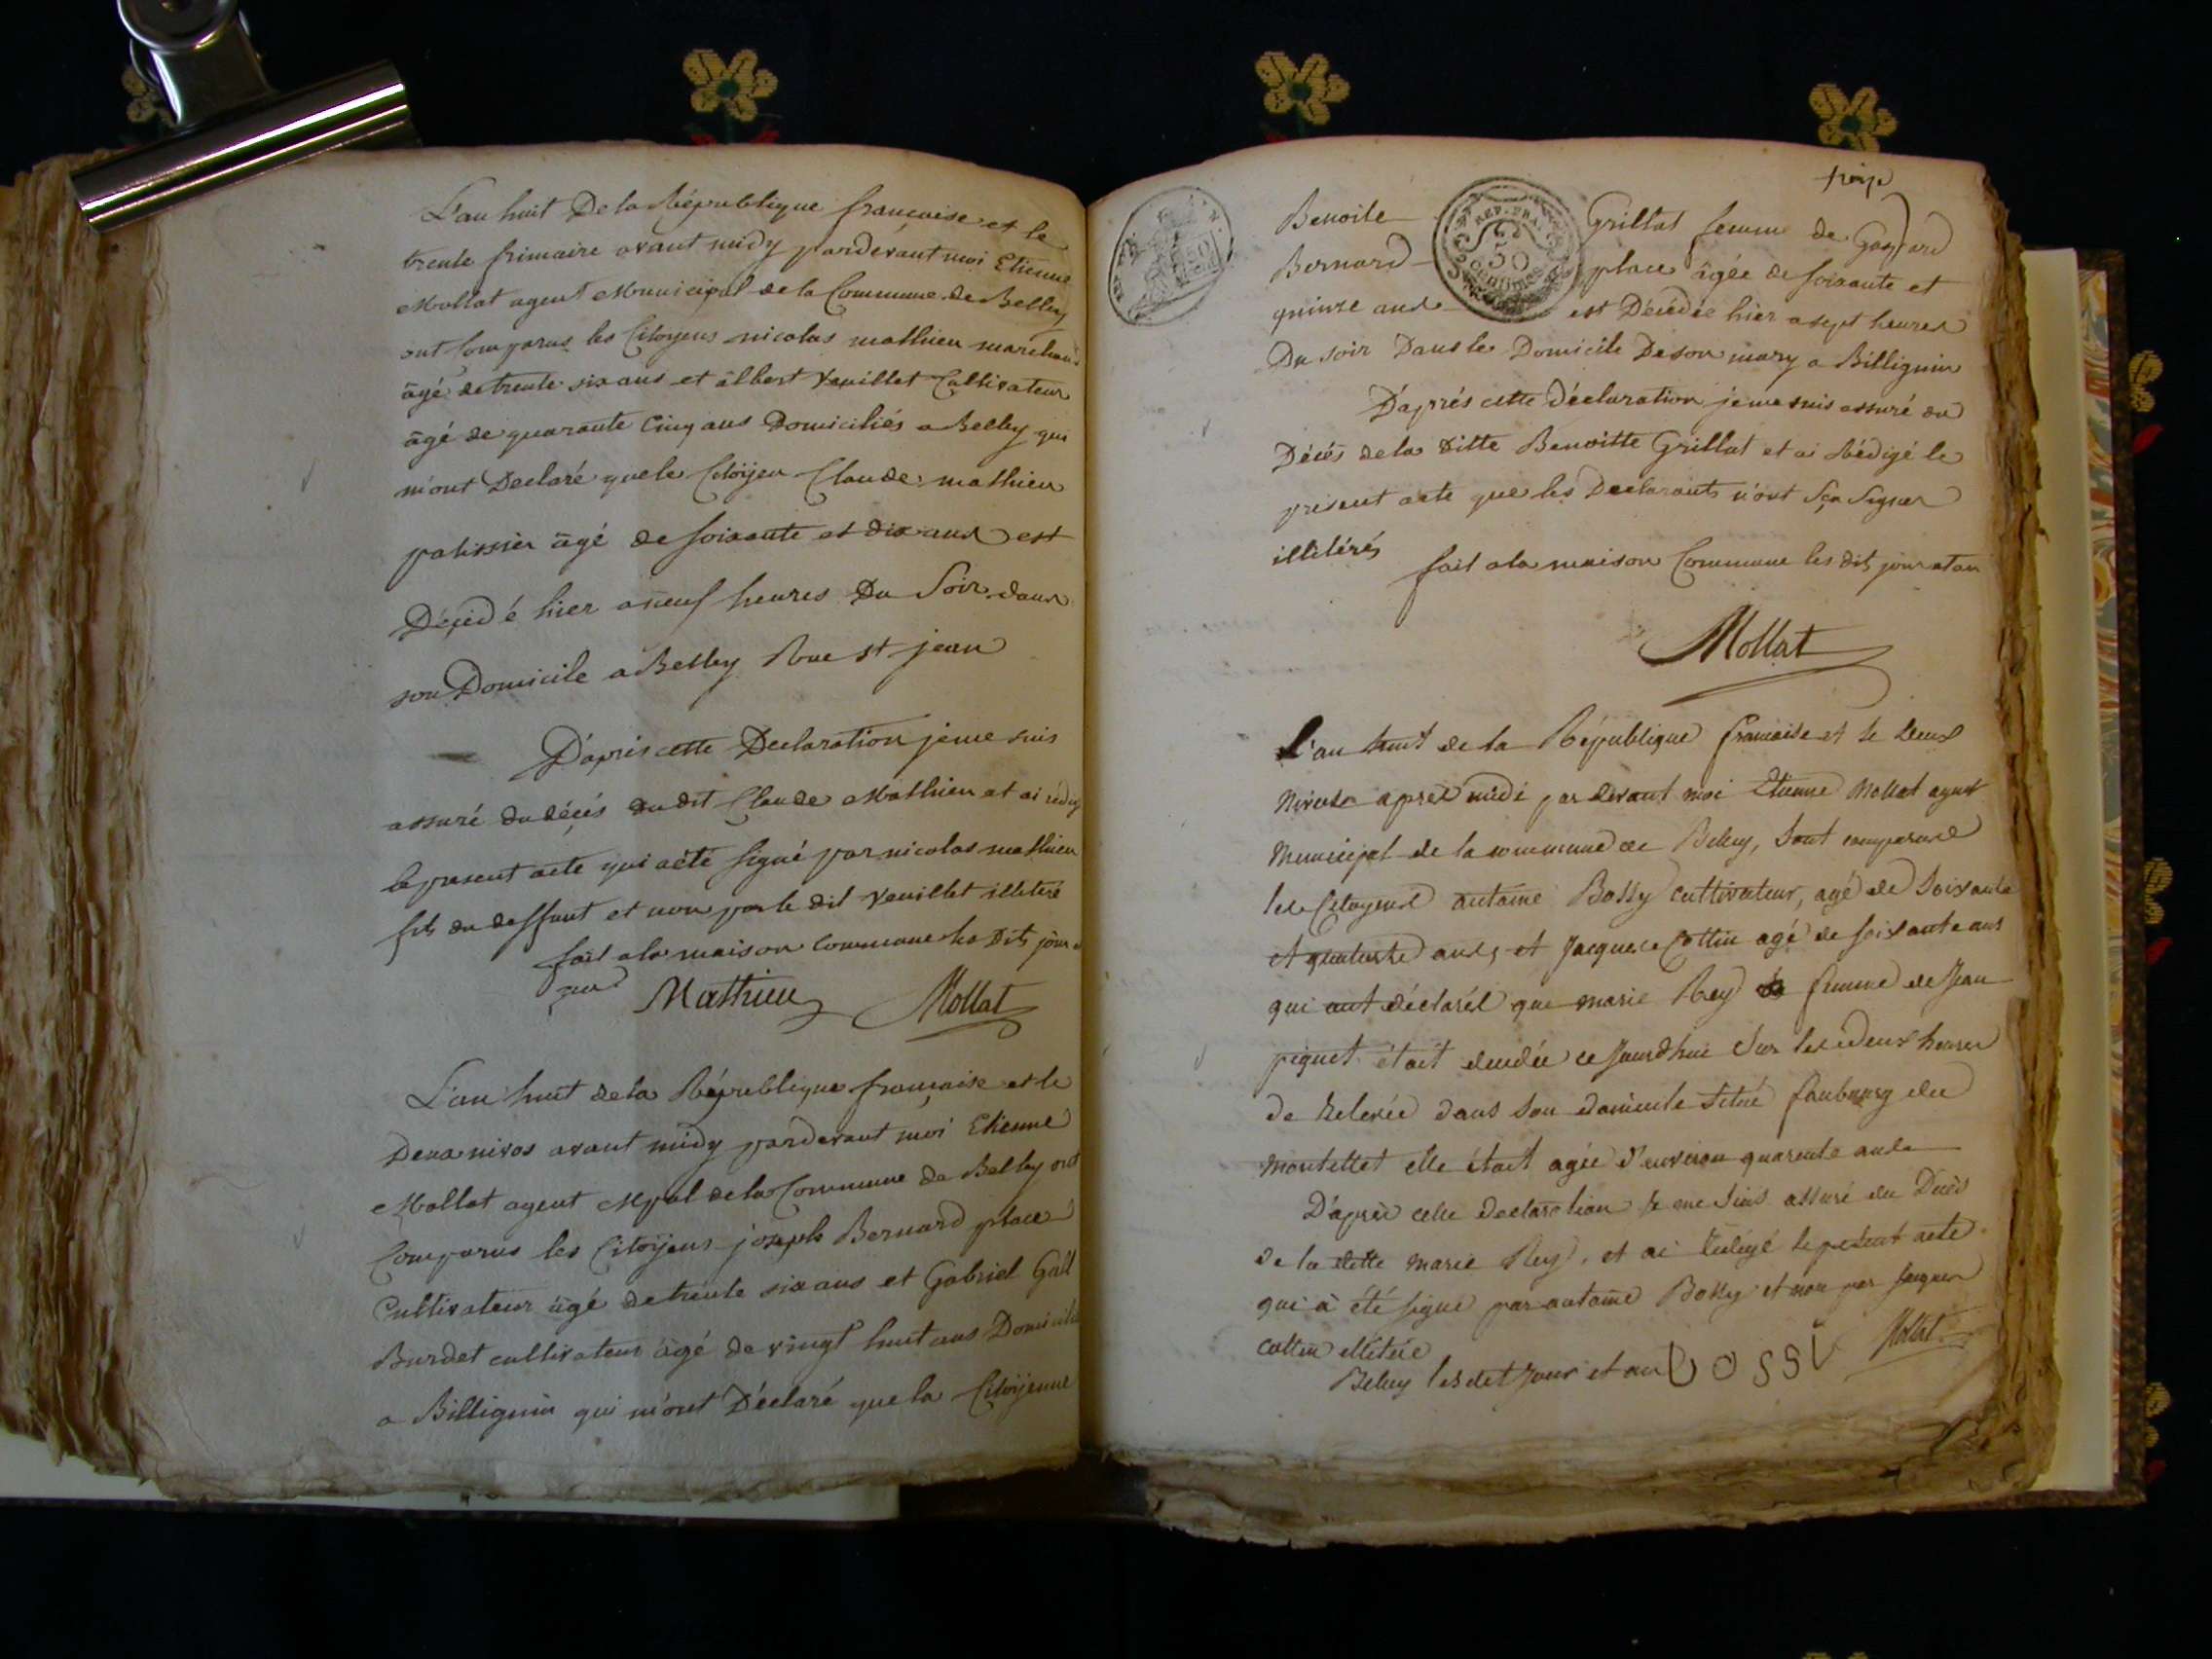 L'an huit De la République francaise et le
trente frimaire avant midy pardevant moi Etienne
Mollat agent Municipal de la Commune de Belley
ont Comparus les Citoyens nicolas mathieu marchand
âgé de trente six ans et albert Veuillet Cultivateur
âgé de quarante Cinq ans Domiciliés a Belley qui
m'ont Declaré que le Citoÿen Claude mathieu
patissier âgé de soixante et dix ans est
Décidé hier a neuf heures Du Soir dans
son Domicile a Belley Rue st jean
D'apris cette Declaration je me suis
assuré du décés du dit Claude Mathieu et ai rédigé
le present acte qui a été signé par nicolas mathieu
fils du deffunt et non par le dit Veuillet illiteré
fait a la maison Commune les Dits jour et
an Mathieu Mollat
L'an huit de la République française et le
Deux nivos avant midy pardevant moi Etienne
Mollat agent Mpal de la Commune de Belley ont
Comparus les Citoÿens joseph Bernard place
Cultivateur âgé de trente six ans et Gabriel Gall
Burdet cultivateur âgé de vingt huit ans Domiciliés
a Billignin qui m'ont Déclaré que la Citoÿenne
Benoite Grillat femme de Gaspard
REP. FRA.
50
centimes
Bernard place âgée de soixante et
quinze ans est Décédée hier a sept heures
Du soir Dans le Domicile De son mary a Billignin
D'aprés cette Déclaration je me suis assuré du
Décés de la ditte Benoitte Grillat et ai Rédigé le
present acte que les Declarants n'ont Sçu Signer
illitérés
fait a la maison Commune les dits jour et an
Mollat
L'an huit de la République francaise et le deux
Nivose aprés midi par devant moi Etienne Mollat agent
Municipal de la commune de Belley, sont comparus
les Citoyens antoine Bossy cultivateur, agé de soixante
et quatorze ans, et Jacques Cottin agé de soixante ans
qui ont déclarés que marie Rey femme de Jean
piquet était décédée ce jourdhui sur les deux heures
de Relevée dans son domicile situé faubourg du
Montellet elle était agée d'environ quarente ans
D'après cette declaration je me suis assuré du Décès
de la ditte marie Rey, et ai rédigé le présent acte
qui à été signé par antoine Bossy et non par Jacques
cottin illiteré
Belley les dit jour et an BOSSI Mollat